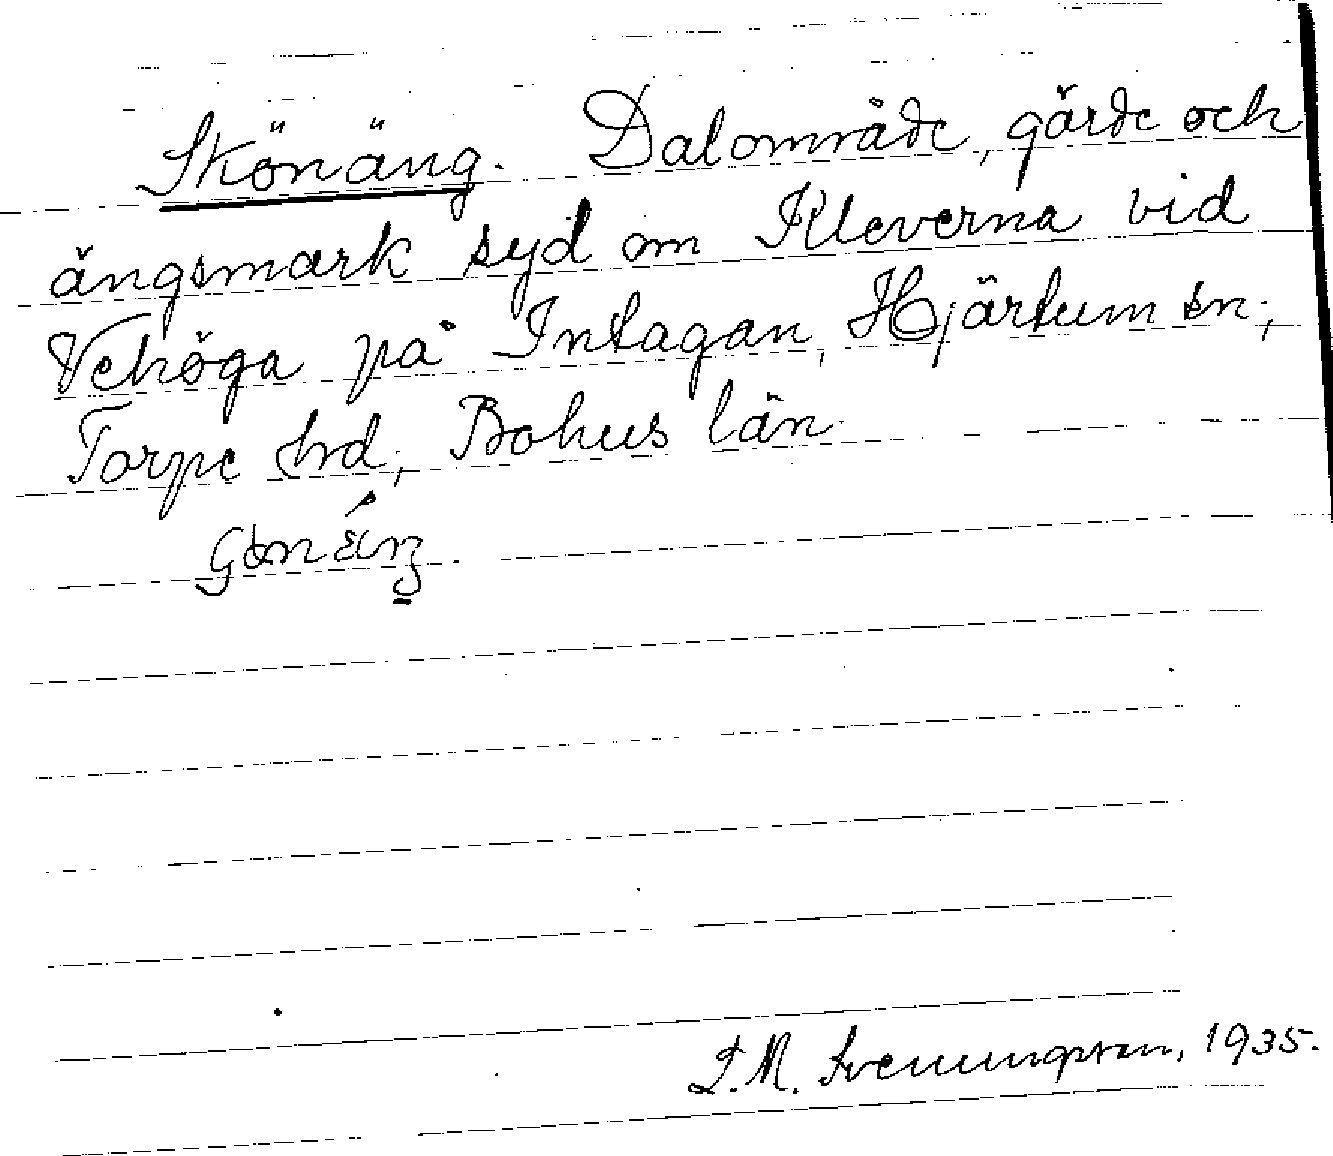 Skönäng. Dalområde, gärde och
ängsmark syd om Kleverna vid
Vehöga på Intagan, Hjärtum sn;
Torpe hrd, Bohus län.
S.M. Svenungsson, 1935.